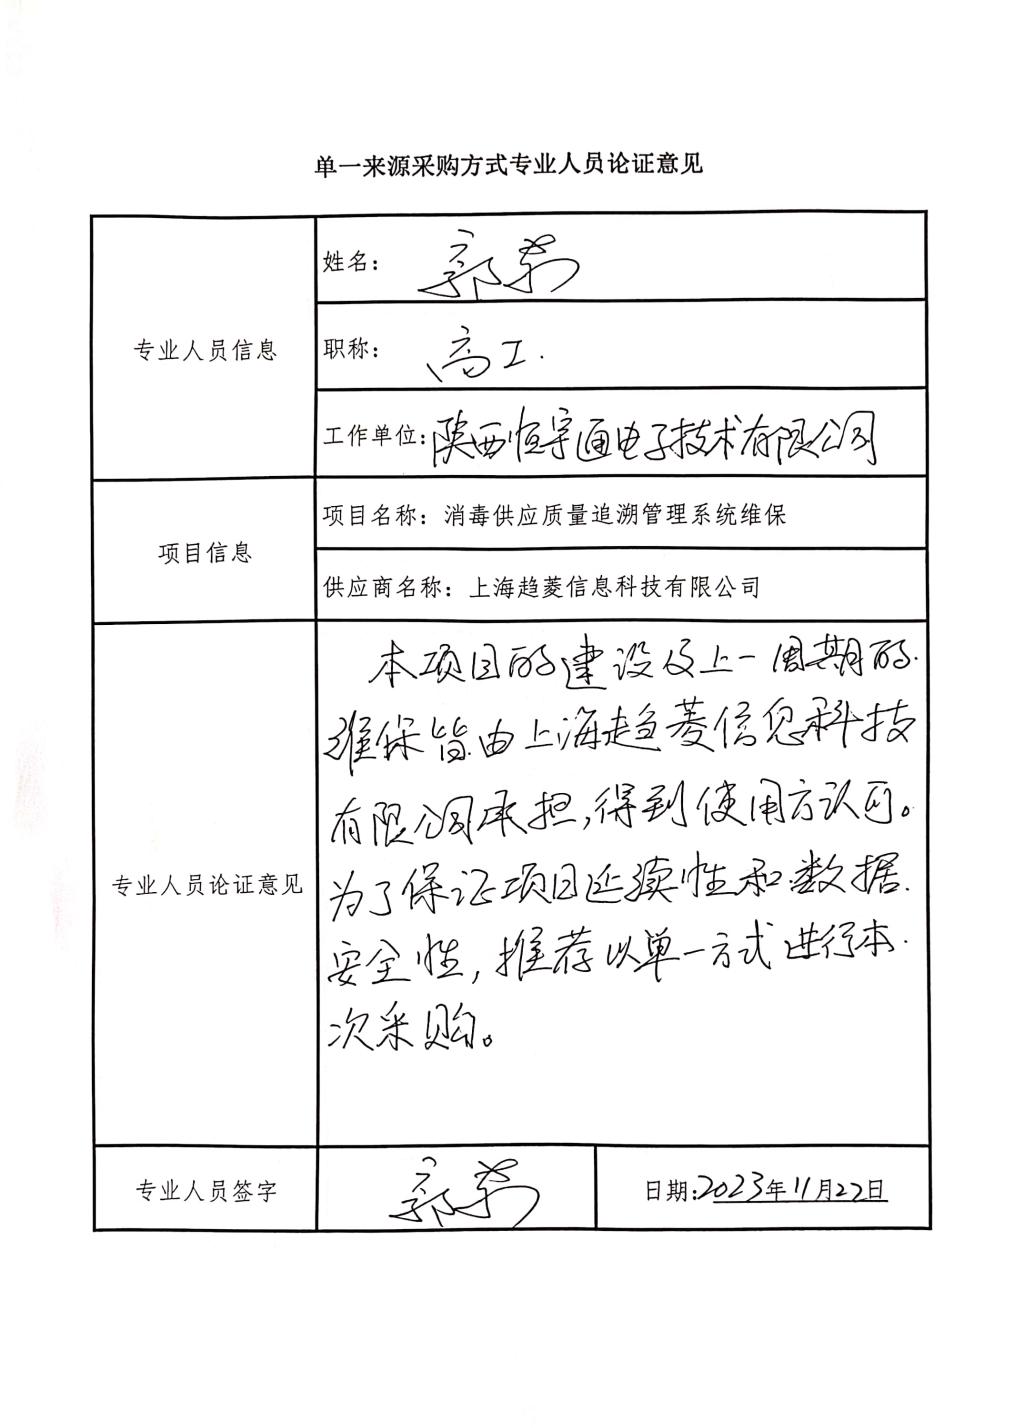 单一来源采购方式专业人员论证意见
专业人员信息
姓名：郭
职称：高工.
工作单位:陕西恒宇通电子技术有限公司
项目信息
项目名称：消毒供应质量追溯管理系统维保
供应商名称：上海趋菱信息科技有限公司
专业人员论证意见
本项目的建设及上一周期的
维保皆由上海趋菱信息科技
有限公司承担,得到使用方认可。
为了保证项目延续性和数据
安全性,推荐以单一方式进行本
次采购。
专业人员签字
郭
日期:2023年11月22日